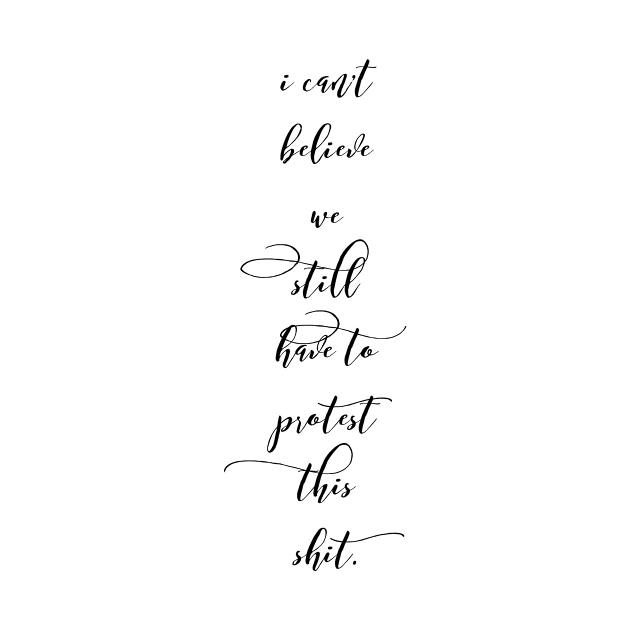 i can't
believe
we
still
have to
protest
this
shit.